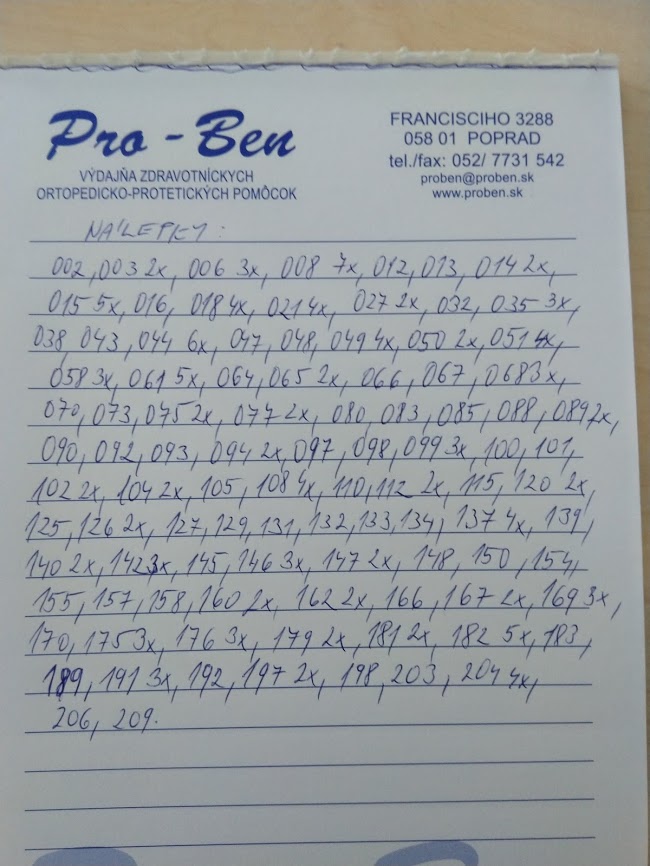 Pro-Ben
VÝDAJŇA ZDRAVOTNÍCKYCH
ORTOPEDICKO-PROTETICKÝCH POMÔCOK
FRANCISCIHO 3288
058 01 POPRAD
tel./fax: 052/ 7731 542
proben@proben.sk
www.proben.sk
NÁLEPKY:
002, 003 2x, 006 3x, 008 7x, 012, 013, 014 2x,
015 5x, 016, 018 4x, 021 4x, 027 2x, 032, 035 3x,
038, 043, 044 6x, 047, 048, 049 4x, 050 2x, 051 4x,
058 3x, 061 5x, 064, 065 2x, 066, 067, 068 3x,
070, 073, 075 2x, 077 2x, 080, 083, 085, 088, 089 2x,
090, 092, 093, 094 2x, 097, 098, 099 3x, 100, 101,
102 2x, 104 2x, 105, 108 4x, 110, 112 2x, 115, 120 2x,
125, 126 2x, 127, 129, 131, 132, 133, 134, 137 4x, 139,
140 2x, 142 3x, 145, 146 3x, 147 2x, 148, 150, 154,
155, 157, 158, 160 2x, 162 2x, 166, 167 2x, 169 3x,
170, 175 3x, 176 3x, 179 2x, 181 2x, 182 5x, 183,
189, 191 3x, 192, 197 2x, 198, 203, 204 4x,
206, 209.